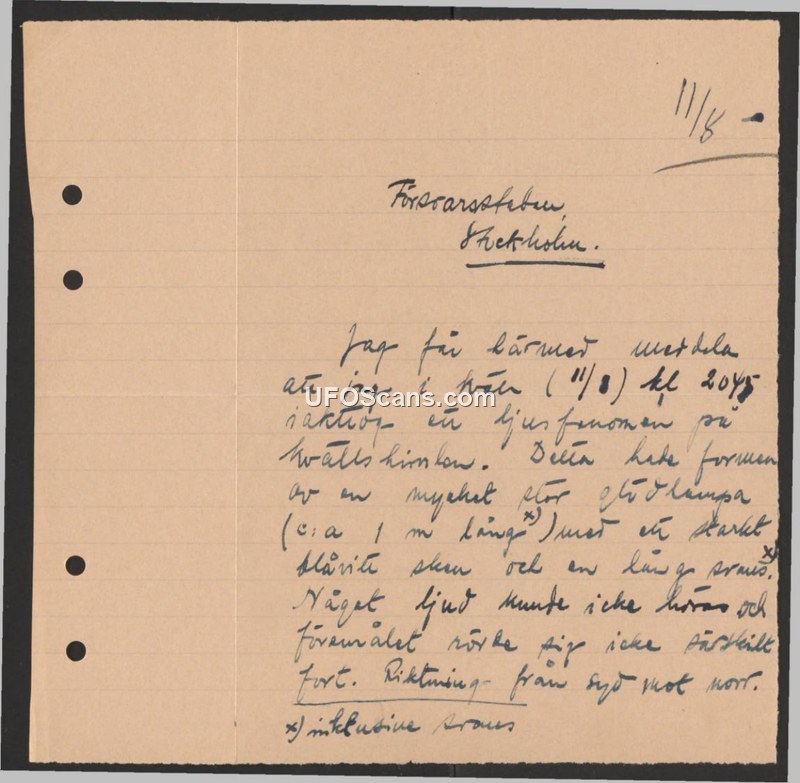 11/8
Försvarsstaben,
Stockholm.
Jag får härmed meddela
att jag i kväll (11/8) kl 2045
UFOScans.com
iakttog ett ljusfenomen på
kvällshimlen. Detta hade formen
av en mycket stor glödlampa
(c:a 1 m lång x)) med ett starkt
blåvitt sken och en lång svans x).
Något ljud kunde icke höras och
föremålet rörde sig icke särskilt
fort. Riktning från syd mot norr.
x) inklusive svans